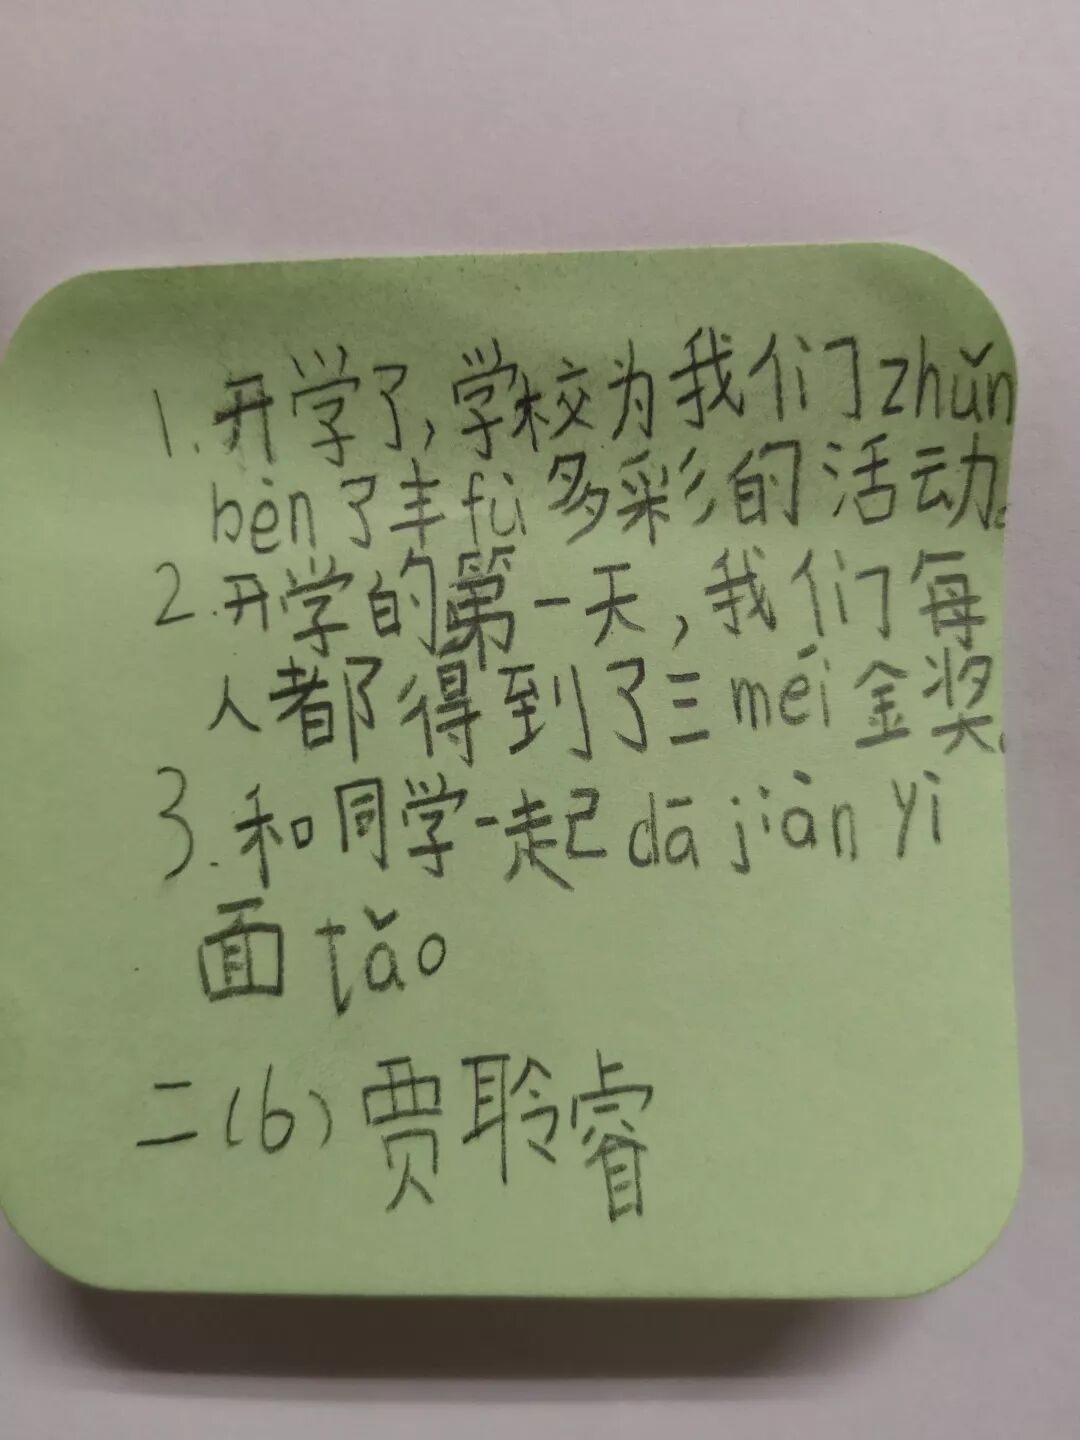 1.开学了,学校为我们zhǔn
bèn了丰fù多彩的活动。
2.开学的第一天,我们每
人都得到了三méi金奖。
3.和同学一起dā jiàn yì
面tǎo
二(6)贾聆睿